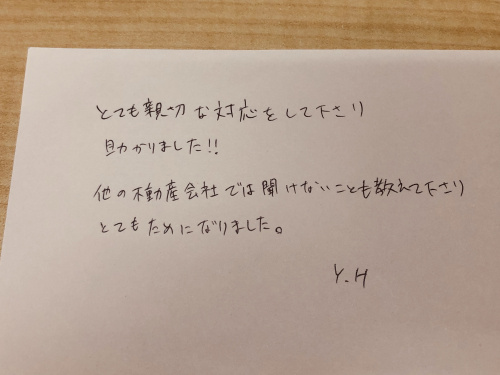 とても親切な対応をして下さり
助かりました!!
他の不動産会社では聞けないことも教えて下さり
とてもためになりました。
Y.H